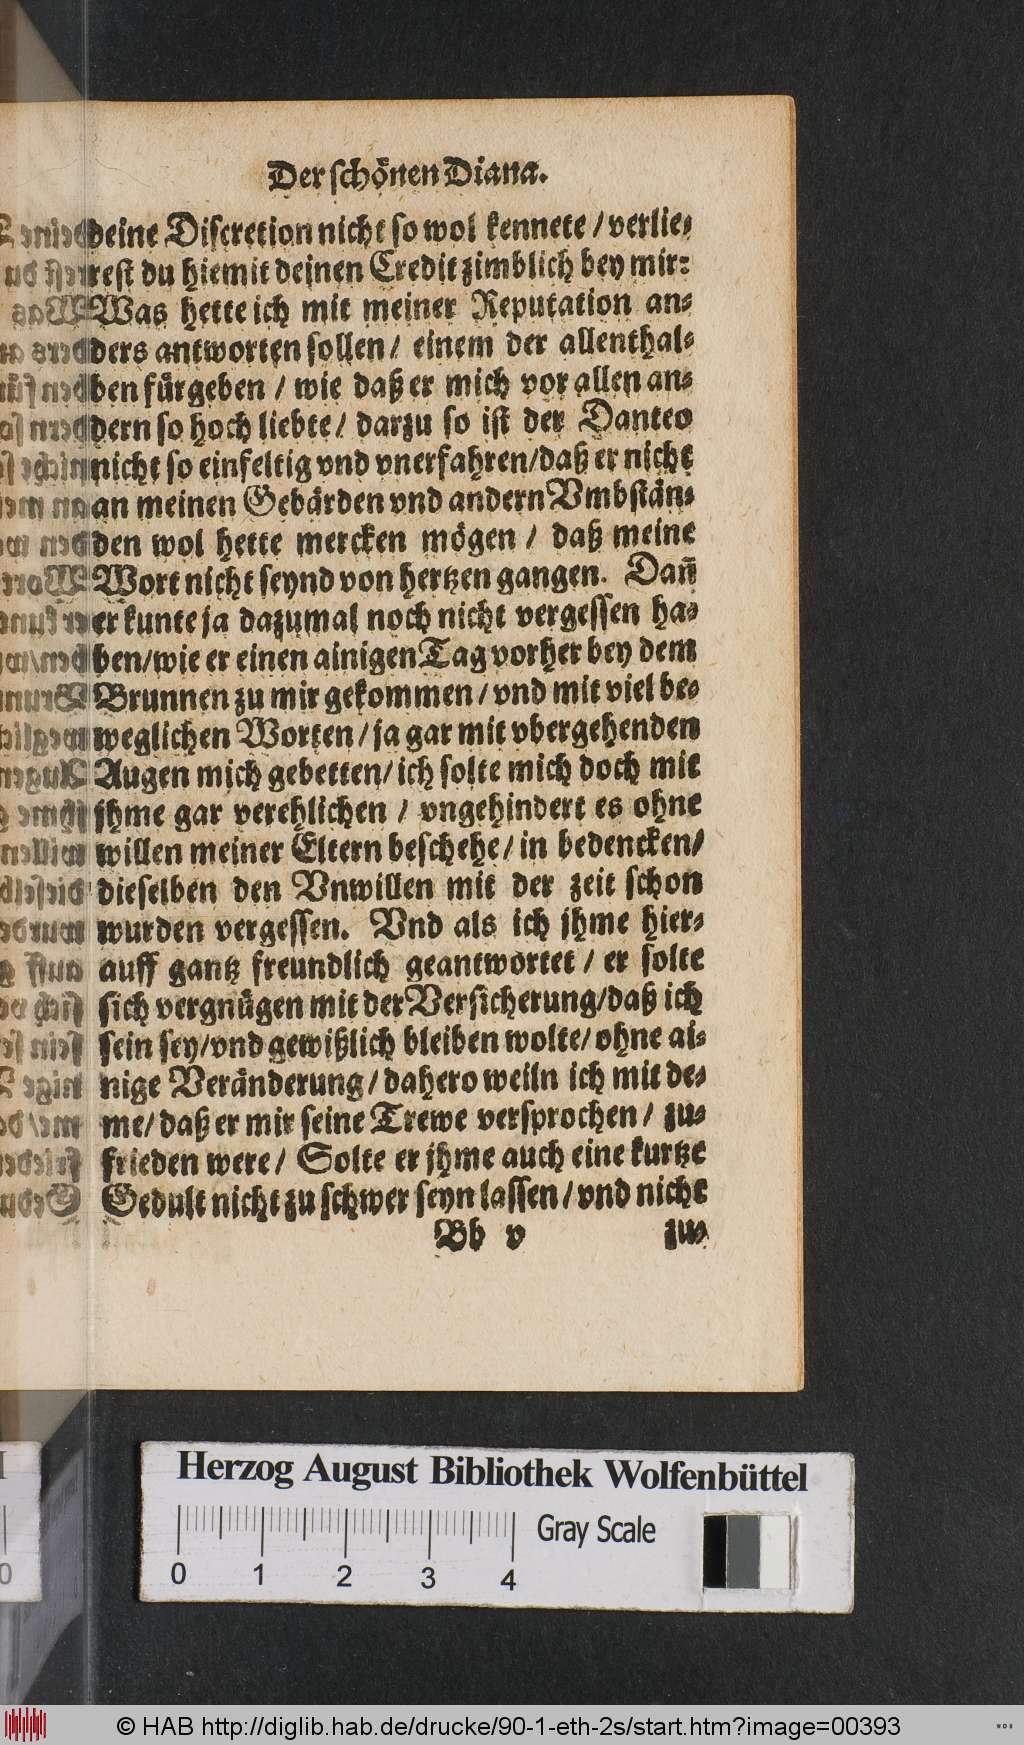 Der schönen Diana.
deine Discretion nicht so wol kennete / verlie-
rest du hiemit deinen Credit zimblich bey mir:
Was hette ich mit meiner Reputation an-
ders antworten sollen / einem der allenthal-
ben fürgeben / wie daß er mich vor allen an-
dern so hoch liebte / darzu so ist der Danteo
nicht so einfeltig vnd vnerfahren / daß er nicht
an meinen Gebärden vnd andern Vmbstän-
den wol hette mercken mögen / daß meine
Wort nicht seynd von hertzen gangen. Dañ
er kunte ja dazumal noch nicht vergessen ha-
ben / wie er einen ainigen Tag vorher bey dem
Brunnen zu mir gekommen / vnd mit viel be-
weglichen Worten / ja gar mit vbergehenden
Augen mich gebetten / ich solte mich doch mit
jhme gar verehlichen / vngehindert es ohne
willen meiner Eltern beschehe / in bedencken /
dieselben den Vnwillen mit der zeit schon
wurden vergessen. Vnd als ich jhme hier-
auff gantz freundlich geantwortet / er solte
sich vergnügen mit der Versicherung / daß ich
sein sey / vnd gewißlich bleiben wolte / ohne ai-
nige Veränderung / dahero weiln ich mit de-
me / daß er mir seine Trewe versprochen / zu-
frieden were / Solte er jhme auch eine kurtze
Gedult nicht zu schwer seyn lassen / vnd nicht
Bb v zu-
Herzog August Bibliothek Wolfenbüttel
Gray Scale
0 1 2 3 4
© HAB http://diglib.hab.de/drucke/90-1-eth-2s/start.htm?image=00393